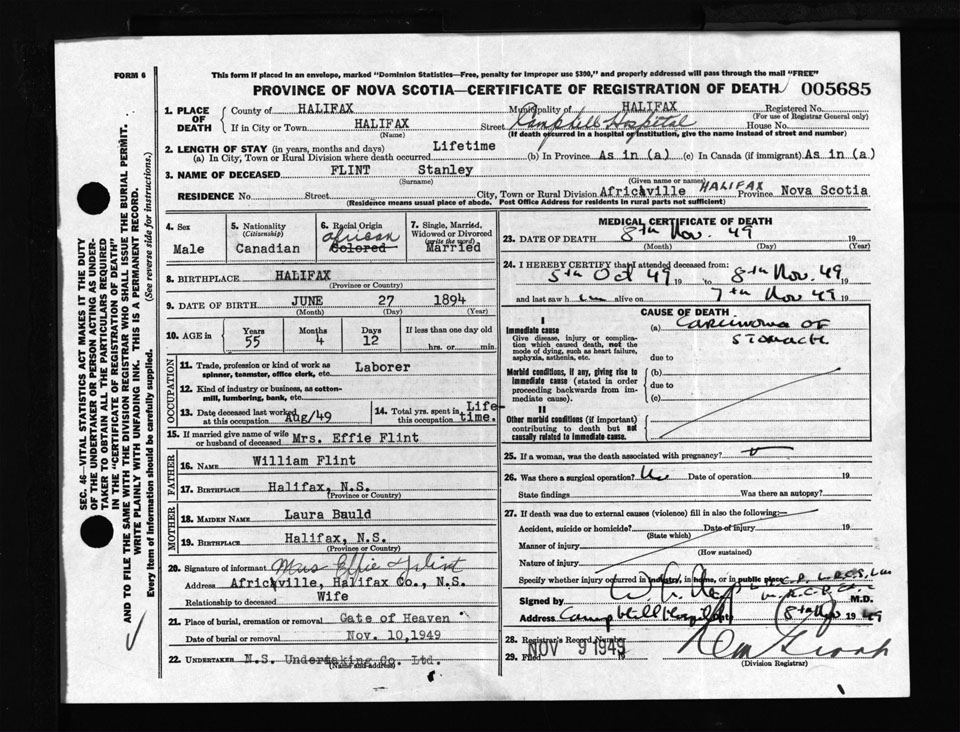 FORM 6
This form if placed in an envelope, marked "Dominion Statistics—Free, penalty for improper use $300," and properly addressed will pass through the mail "FREE"
PROVINCE OF NOVA SCOTIA—CERTIFICATE OF REGISTRATION OF DEATH 005685
1. PLACE OF DEATH
County of HALIFAX Municipality of HALIFAX Registered No.
(For use of Registrar General only)
If in City or Town HALIFAX Street Camphill Hospital House No.
(Name) (If death occurred in a hospital or institution, give the name instead of street and number)
2. LENGTH OF STAY (in years, months and days)
(a) In City, Town or Rural Division where death occurred Lifetime (b) In Province As in (a) (c) In Canada (if immigrant) As in (a)
3. NAME OF DECEASED FLINT Stanley
(Surname) (Given name or names)
RESIDENCE No. Street City, Town or Rural Division Africville HALIFAX Province Nova Scotia
(Residence means usual place of abode. Post Office Address for residents in rural parts not sufficient)
4. Sex Male
5. Nationality (Citizenship) Canadian
6. Racial Origin African Colored
7. Single, Married, Widowed or Divorced (write the word) Married
8. BIRTHPLACE HALIFAX
(Province or Country)
9. DATE OF BIRTH JUNE 27 1894
(Month) (Day) (Year)
10. AGE in Years 55 Months 4 Days 12 If less than one day old hrs. or min.
OCCUPATION
11. Trade, profession or kind of work as spinner, teamster, office clerk, etc. Laborer
12. Kind of industry or business, as cotton-mill, lumbering, bank, etc.
13. Date deceased last worked at this occupation Aug/49
14. Total yrs. spent in this occupation Life-time.
15. If married give name of wife or husband of deceased Mrs. Effie Flint
FATHER
16. NAME William Flint
17. BIRTHPLACE Halifax, N.S.
(Province or Country)
MOTHER
18. MAIDEN NAME Laura Bauld
19. BIRTHPLACE Halifax, N.S.
(Province or Country)
20. Signature of informant Mrs Effie Flint
Address Africville, Halifax Co., N.S.
Relationship to deceased Wife
21. Place of burial, cremation or removal Gate of Heaven
Date of burial or removal Nov. 10,1949
22. UNDERTAKER N.S. Undertaking Co. Ltd.
(Name and address)
MEDICAL CERTIFICATE OF DEATH
23. DATE OF DEATH 8th Nov. 49 19
(Month) (Day) (Year)
24. I HEREBY CERTIFY that I attended deceased from:
5th Oct 49 19 to 8th Nov. 49 19
and last saw h im alive on 7th Nov 49 19
CAUSE OF DEATH
I
Immediate cause
Give disease, injury or complication which caused death, not the mode of dying, such as heart failure, asphyxia, asthenia, etc.
(a) Carcinoma of Stomach
due to
Morbid conditions, if any, giving rise to immediate cause (stated in order proceeding backwards from immediate cause).
(b)
due to
(c)
II
Other morbid conditions (if important) contributing to death but not causally related to immediate cause.
25. If a woman, was the death associated with pregnancy?
26. Was there a surgical operation? No Date of operation 19
State findings Was there an autopsy?
27. If death was due to external causes (violence) fill in also the following:—
Accident, suicide or homicide? Date of injury 19
(State which)
Manner of injury
(How sustained)
Nature of injury
Specify whether injury occurred in industry, in home, or in public place
Signed by M.D.
Address Camp Hill Hospital Date 8th Nov 19 49
28. Registrar's Record Number
29. Filed NOV 9 1949 19
(Division Registrar)
SEC. 46—VITAL STATISTICS ACT MAKES IT THE DUTY
OF THE UNDERTAKER OR PERSON ACTING AS UNDER-
TAKER TO OBTAIN ALL THE PARTICULARS REQUIRED
IN THE "CERTIFICATE OF REGISTRATION OF DEATH"
AND TO FILE THE SAME WITH THE DIVISION REGISTRAR WHO SHALL ISSUE THE BURIAL PERMIT.
WRITE PLAINLY WITH UNFADING INK. THIS IS A PERMANENT RECORD.
Every item of information should be carefully supplied. (See reverse side for instructions.)